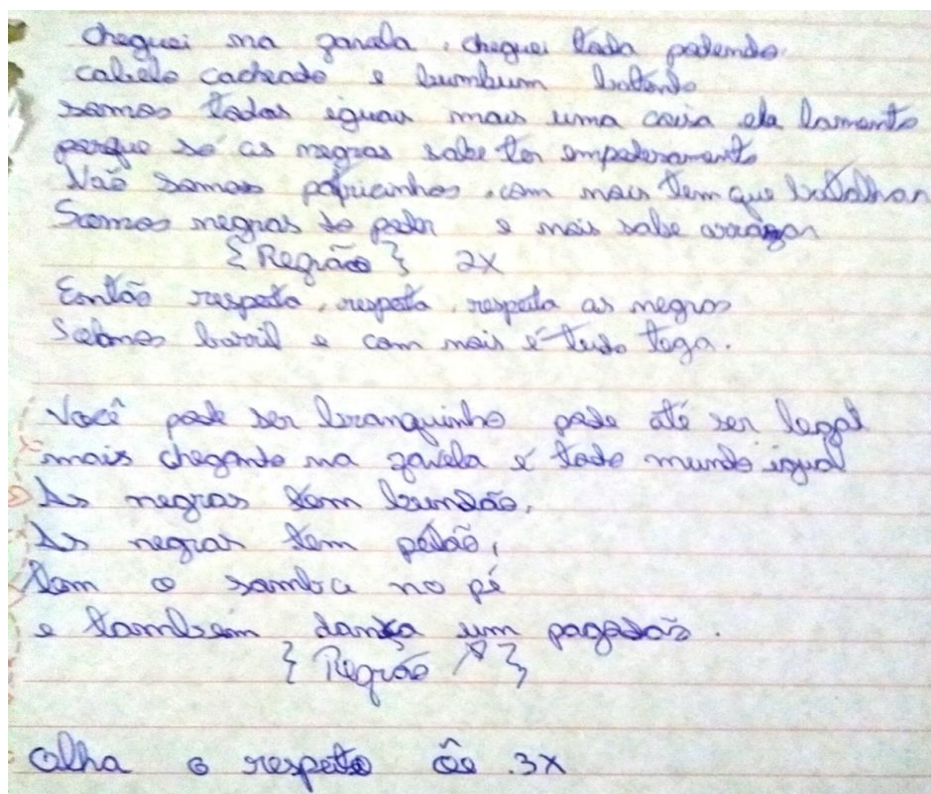 cheguei na favela, cheguei toda podendo
cabelo cacheado e bumbum batendo
somos todas iguais mais uma coisa ela lamento
porque só as negras sabe ter empoderamento
Não somos patricinhas, com nois tem que batalhar
Somos negras do poder e nois sabe arrazar
{ Regrão } 2X
Então respeita, respeita, respeita as negras
Somos barril e com nois é tudo
Você pode ser branquinho pode até ser legal
mais chegando na favela é todo mundo igual
As negras tem bundão,
As negras tem
tem o samba no pé
e também dança um pagodão.
{ Regrão }
Olha o respeito ôo 3X